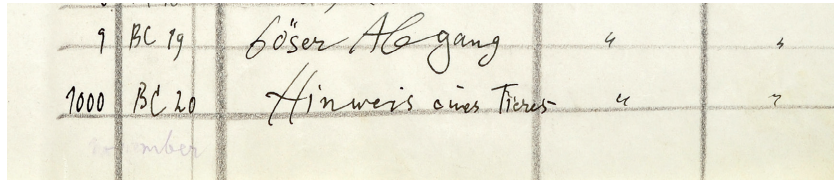 9 BC 19 böser Abgang " "
1000 BC 20 Hinweis eines Tieres " "
november